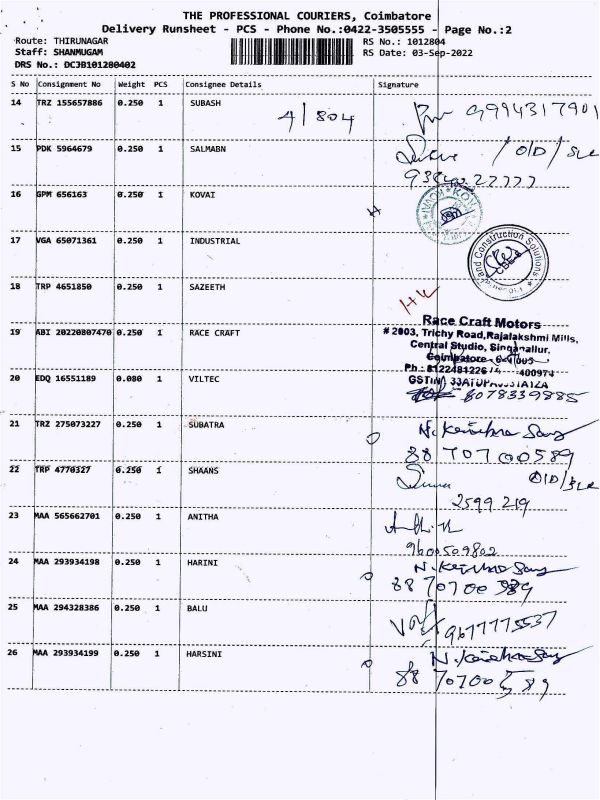 THE PROFESSIONAL COURIERS, Coimbatore
Delivery Runsheet - PCS - Phone No.:0422-3505555 - Page No.:2
Route: THIRUNAGAR
RS No.: 1012804
Staff: SHANMUGAM
RS Date: 03-Sep-2022
DRS No.: DCJB101280402
S No Consignment No Weight PCS Consignee Details Signature
14 TRZ 155657886 0.250 1 SUBASH 4/804 9994317901
15 PDK 5964679 0.250 1 SALMABN /O/D/
16 GPM 656163 0.250 1 KOVAI
17 VGA 65071361 0.250 1 INDUSTRIAL
and Construction Solutions
18 TRP 4651850 0.250 1 SAZEETH
Race Craft Motors
# 2003, Trichy Road,Rajalakshmi Mills,
19 ABI 20220807470 0.250 1 RACE CRAFT
Central Studio, Singanallur,
Coimbatore
Ph.: 8122481226
20 EDQ 16551189 0.080 1 VILTEC
8078339885
21 TRZ 275073227 0.250 1 SUBATRA
8870700589
22 TRP 4770327 0.250 1 SHAANS O/D/
2599 219
23 MAA 565662701 0.250 1 ANITHA
9600509802
24 MAA 293934198 0.250 1 HARINI
8870700589
25 MAA 294328386 0.250 1 BALU
9677775537
26 MAA 293934199 0.250 1 HARSINI
8870700589